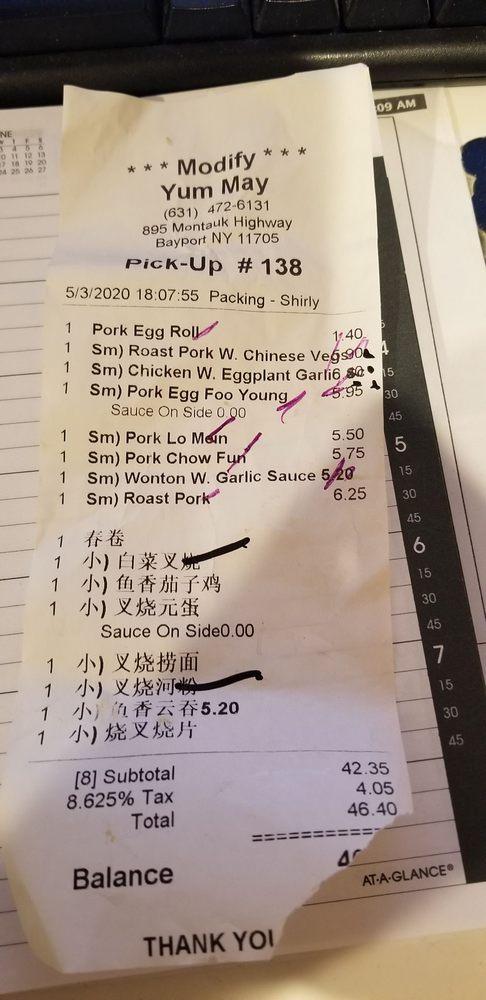 09 AM
* * * Modify * * *
Yum May
(631) 472-6131
895 Montauk Highway
Bayport NY 11705
Pick-Up # 138
5/3/2020 18:07:55 Packing - Shirly
1 Pork Egg Roll 1.40
1 Sm) Roast Pork W. Chinese Vegs
1 Sm) Chicken W. Eggplant Garli
1 Sm) Pork Egg Foo Young 5.95
Sauce On Side 0.00
1 Sm) Pork Lo Mein 5.50
1 Sm) Pork Chow Fun 5.75
1 Sm) Wonton W. Garlic Sauce 5.20
1 Sm) Roast Pork 6.25
1 春卷
1 小) 白菜叉烧
1 小) 鱼香茄子鸡
1 小) 叉烧元蛋
Sauce On Side0.00
1 小) 叉烧捞面
1 小) 叉烧河粉
1 小) 鱼香云吞5.20
1 小) 烧叉烧片
[8] Subtotal 42.35
8.625% Tax 4.05
Total 46.40
==============
Balance
THANK YOU
4
15
30
45
5
15
30
45
6
15
30
45
7
15
30
45
AT-A-GLANCE®